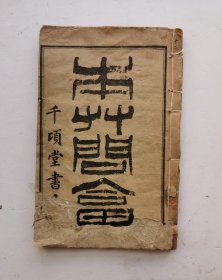 本艸問畣
千頃堂書